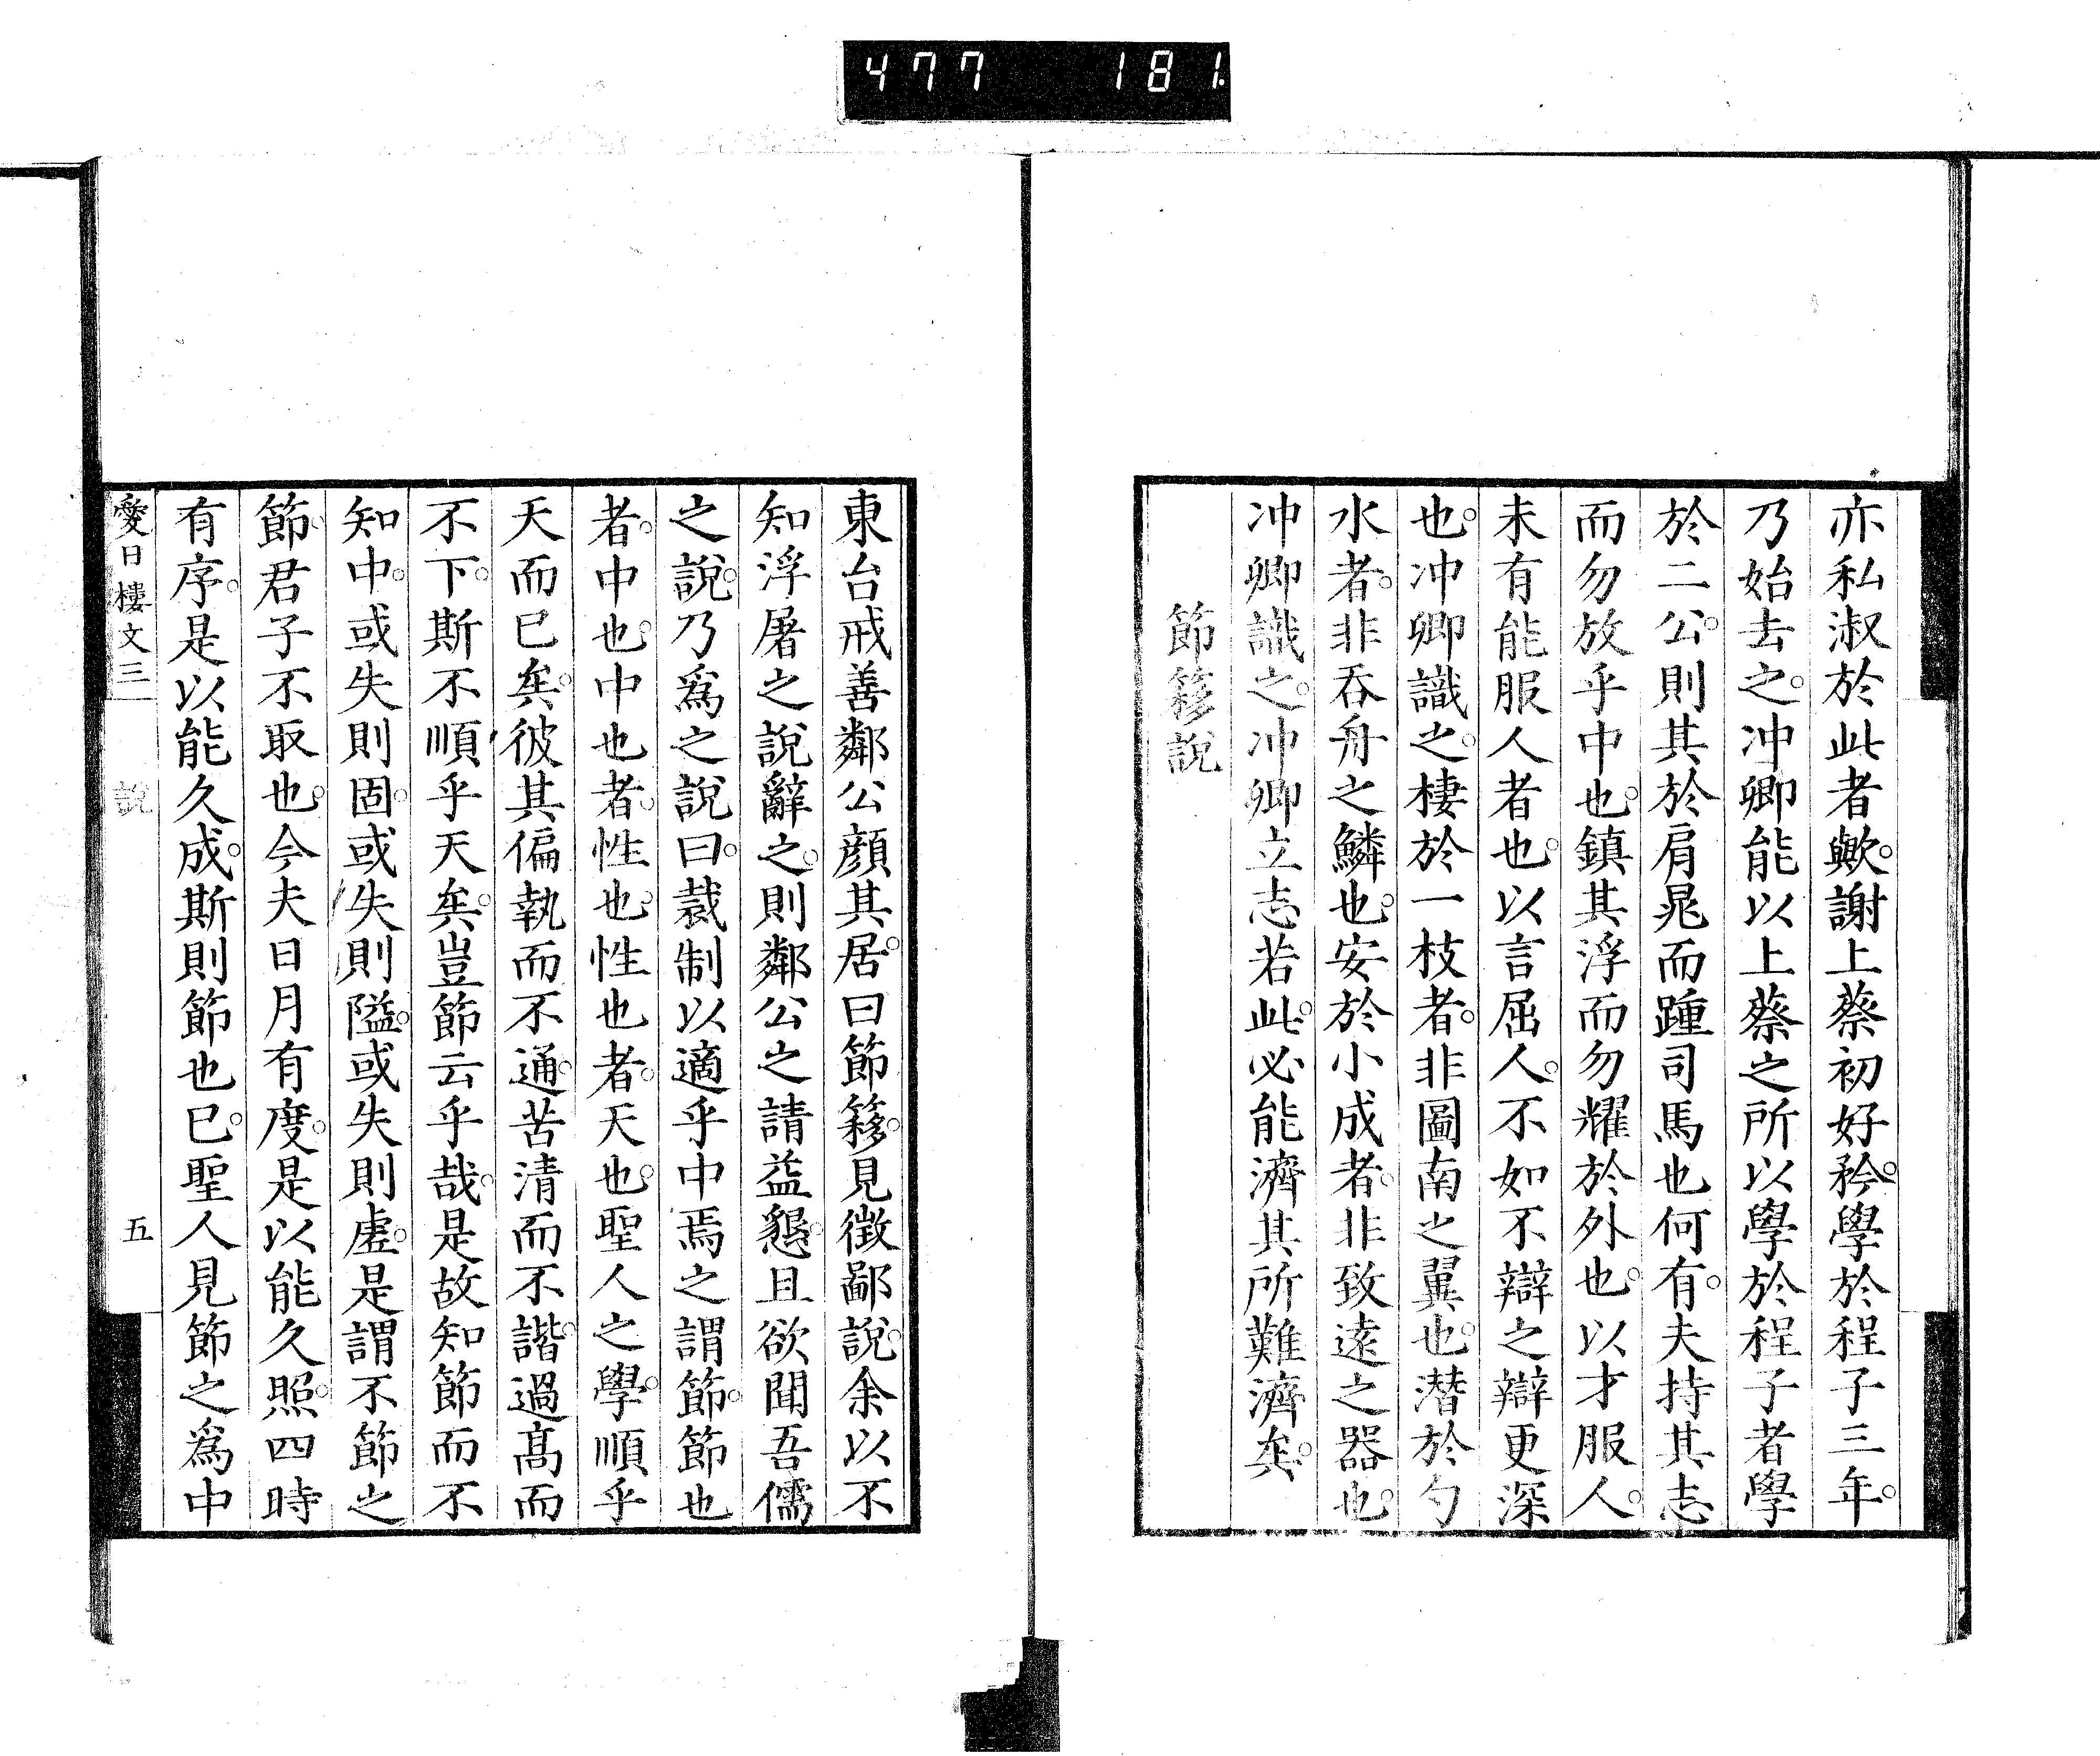 477 181
亦私淑於此者歟。謝上蔡初好矜。學於程子三年。
乃始去之。冲卿能以上蔡之所以學於程子者學
於二公。則其於肩晁而踵司馬也何有。夫持其志
而勿放乎中也。鎮其浮而勿耀於外也。以才服人。
未有能服人者也。以言屈人。不如不辯之辯更深
也。冲卿識之。棲於一枝者。非圖南之翼也。潛於勺
水者。非吞舟之鱗也。安於小成者。非致遠之器也。
冲卿識之。冲卿立志若此。必能濟其所難濟矣。
節簃說
東台戒善鄰公顏其居。曰節簃。見徵鄙說。余以不
知浮屠之說辭之。則鄰公之請益懇。且欲聞吾儒
之說。乃爲之說曰。裁制以適乎中焉之謂節。節也
者。中也。中也者。性也。性也者。天也。聖人之學。順乎
天而已矣。彼其偏執而不通。苦清而不諧。過高而
不下。斯不順乎天矣。豈節云乎哉。是故知節而不
知中。或失則固。或失則隘。或失則虛。是謂不節之
節。君子不取也。今夫日月有度。是以能久照。四時
有序。是以能久成。斯則節也已。聖人見節之爲中
愛日樓文三 說 五